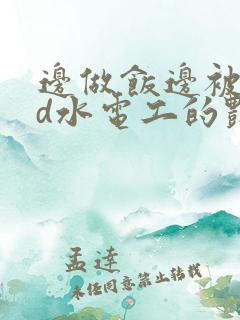 邊做飯邊被
d水電工的
孟達
未经同意禁止转载